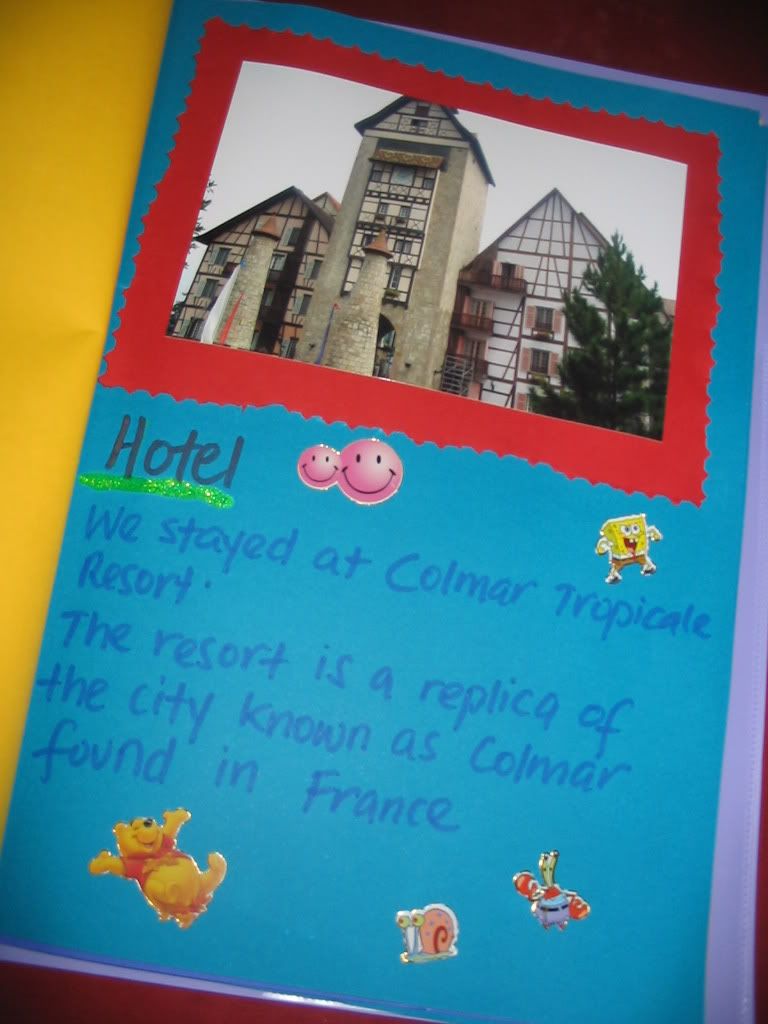 Hotel
We stayed at Colmar Tropicale
Resort.
The resort is a replica of
the city known as Colmar
found in France